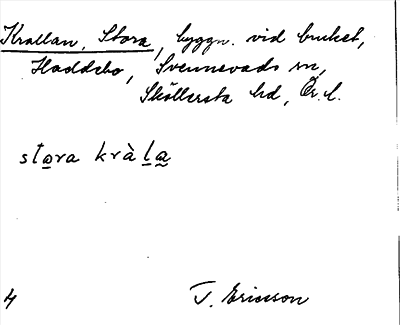 Krallan, Stora, byggn. vid bruket,
Haddebo, Svennevads sn,
Sköllersta hd, Ör. l.
stora kràla
4
T. Ericsson